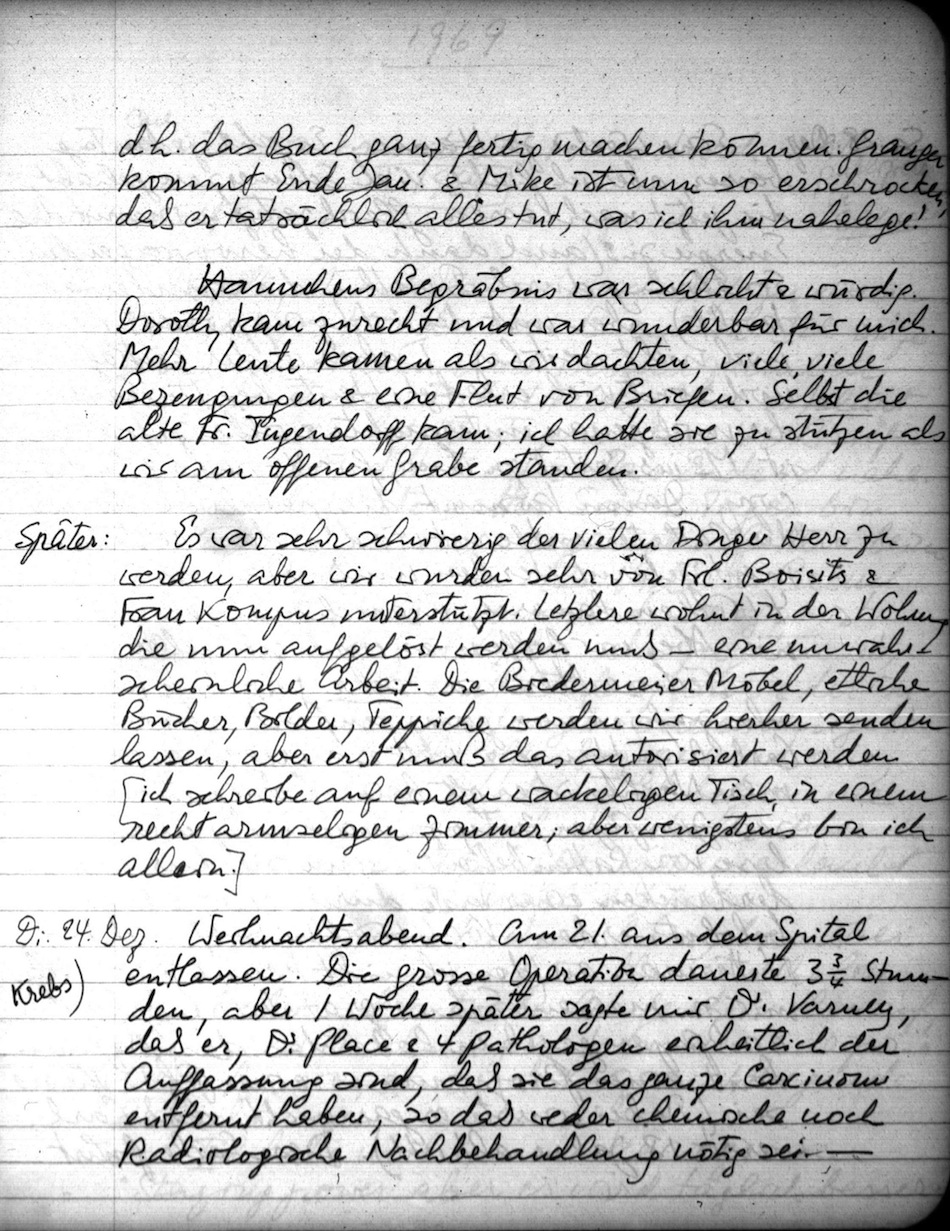 1969
d.h. das Buch ganz fertig machen können. Granger
kommt Ende Jan. & Mike ist nun so erschrocken,
daß er tatsächlich alles tut, was ich ihm nahelege!
Hannchens Begräbnis war schlicht & würdig.
Dorothy kam zurecht und war wunderbar für mich.
Mehr Leute kamen als wir dachten, viele, viele
Bezeugungen & eine Flut von Briefen. Selbst die
alte Fr. Tugendorff kam; ich hatte sie zu stützen als
wir am offenen Grabe standen.
Später: Es war sehr schwierig der vielen Dinge Herr zu
werden, aber wir wurden sehr von Frl. Boisits &
Frau Kompus unterstützt. Letztere wohnt in der Wohnung
die nun aufgelöst werden muß – eine unwahr-
scheinliche Arbeit. Die Biedermeier Möbel, etliche
Bücher, Bilder, Teppiche werden wir hierher senden
lassen, aber erst muß das autorisiert werden
[ich schreibe auf einem wackeligen Tisch, in einem
recht armseligen Zimmer; aber wenigstens bin ich
allein.]
Di. 24. Dez. Weihnachtsabend. Am 21. aus dem Spital
Krebs) entlassen. Die grosse Operation dauerte 3¾ Stun-
den, aber 1 Woche später sagte mir Dr. Varney,
daß er, Dr. Place & 4 Pathologen einheitlich der
Auffassung sind, daß sie das ganze Carcinom
entfernt haben, so daß weder chemische noch
Radiologische Nachbehandlung nötig sei. —